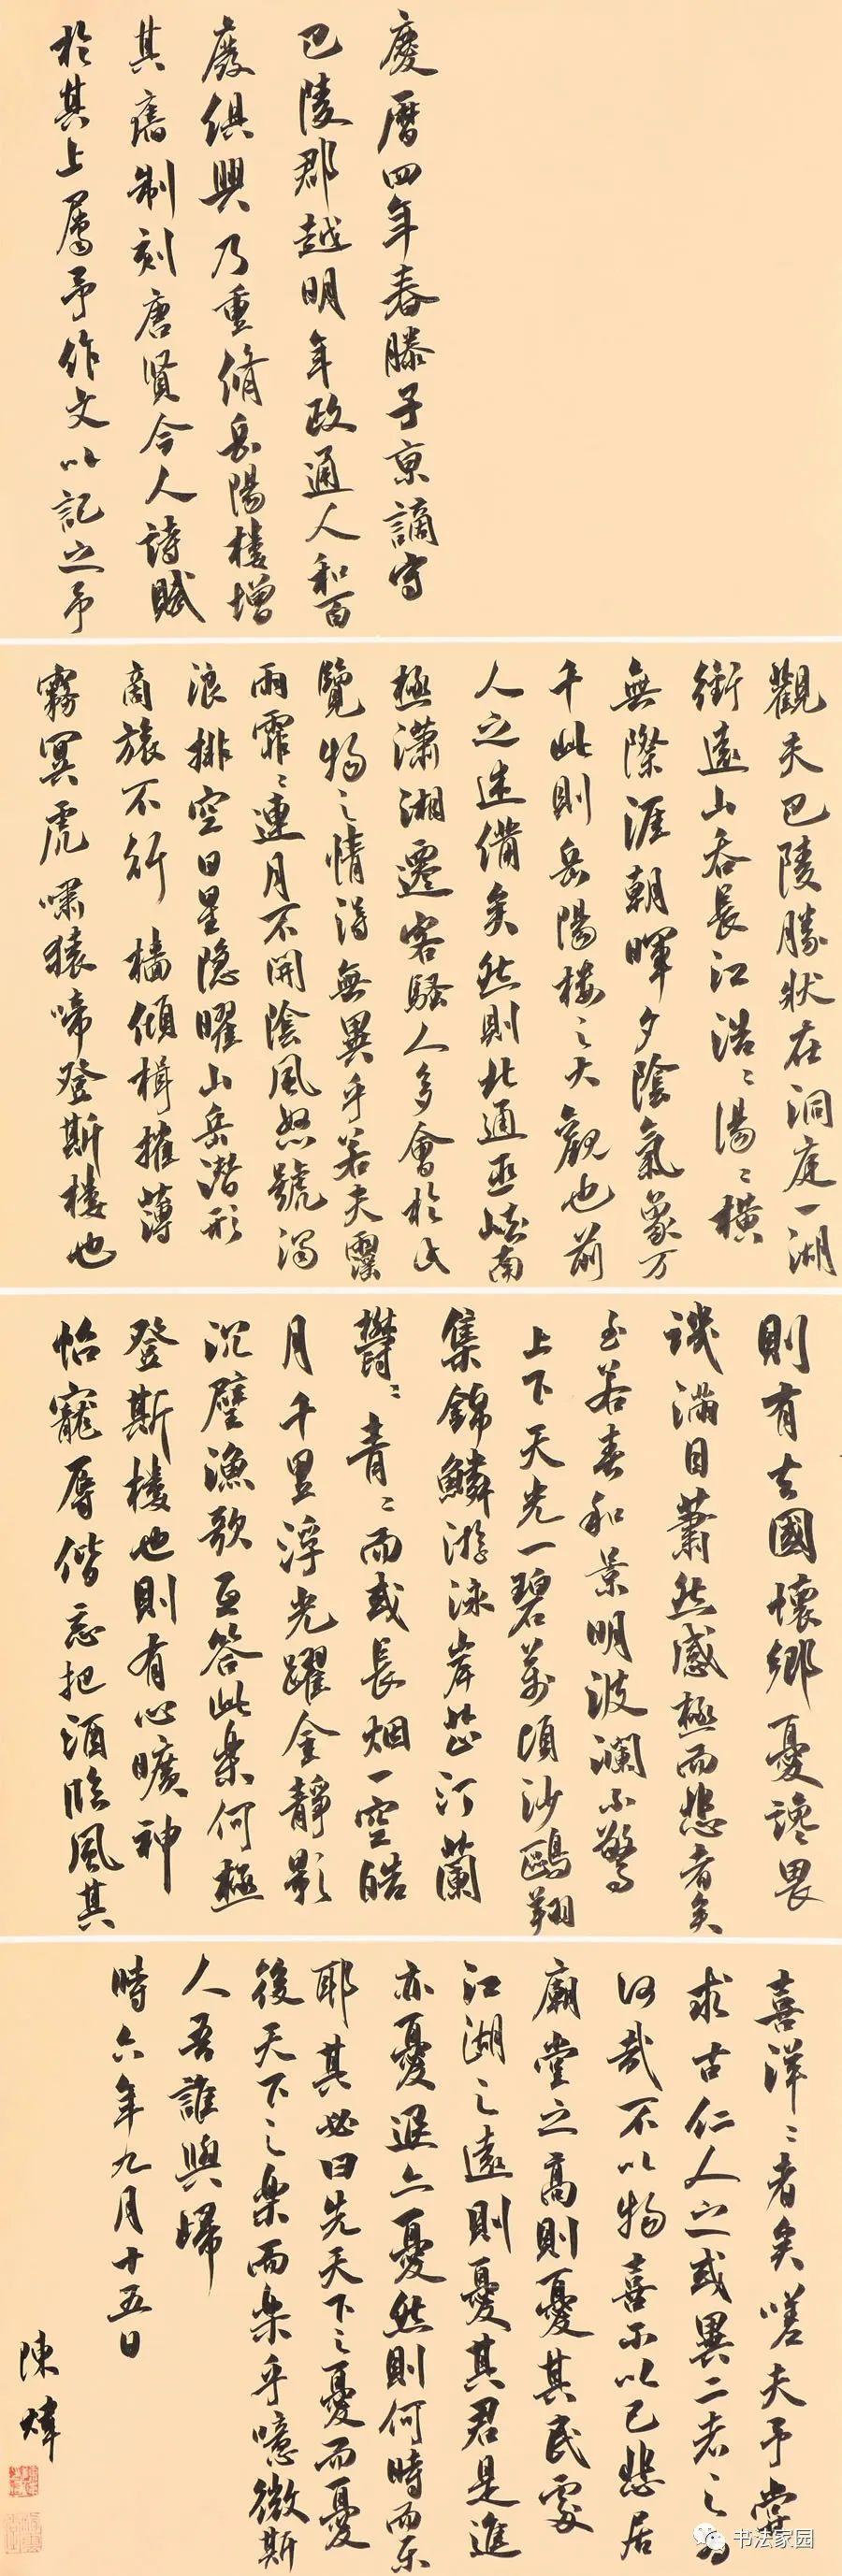 慶曆四年春滕子京謫守
巴陵郡越明年政通人和百
廢俱興乃重脩岳陽樓增
其舊制刻唐賢今人詩賦
於其上屬予作文以記之予
觀夫巴陵勝狀在洞庭一湖
銜遠山吞長江浩〻湯〻橫
無際涯朝暉夕陰氣象万
千此則岳陽樓之大觀也前
人之述備矣然則北通巫峽南
極瀟湘遷客騷人多會於此
覽物之情得無異乎若夫霪
雨霏〻連月不開陰風怒號濁
浪排空日星隱曜山岳潛形
商旅不行檣傾楫摧薄
霧冥虎嘯猿啼登斯樓也
則有去國懷鄉憂讒畏
譏滿目蕭然感極而悲者矣
至若春和景明波瀾不驚
上下天光一碧萬頃沙鷗翔
集錦鱗游泳岸芷汀蘭
鬱〻青〻而或長烟一空皓
月千里浮光躍金靜影
沉璧漁歌互答此樂何極
登斯樓也則有心曠神
怡寵辱偕忘把酒臨風其
喜洋〻者矣嗟夫予嘗
求古仁人之或異二者之為
何哉不以物喜不以己悲居
廟堂之高則憂其民處
江湖之遠則憂其君是進
亦憂退亦憂然則何時而樂
耶其必曰先天下之憂而憂
後天下之樂而樂乎噫微斯
人吾誰與歸
時六年九月十五日
陳煒
书法家园